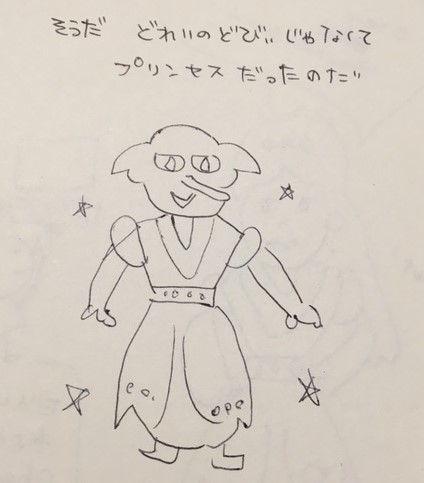 そうだ どれいのどびぃじゃなくて
プリンセスだったのだ